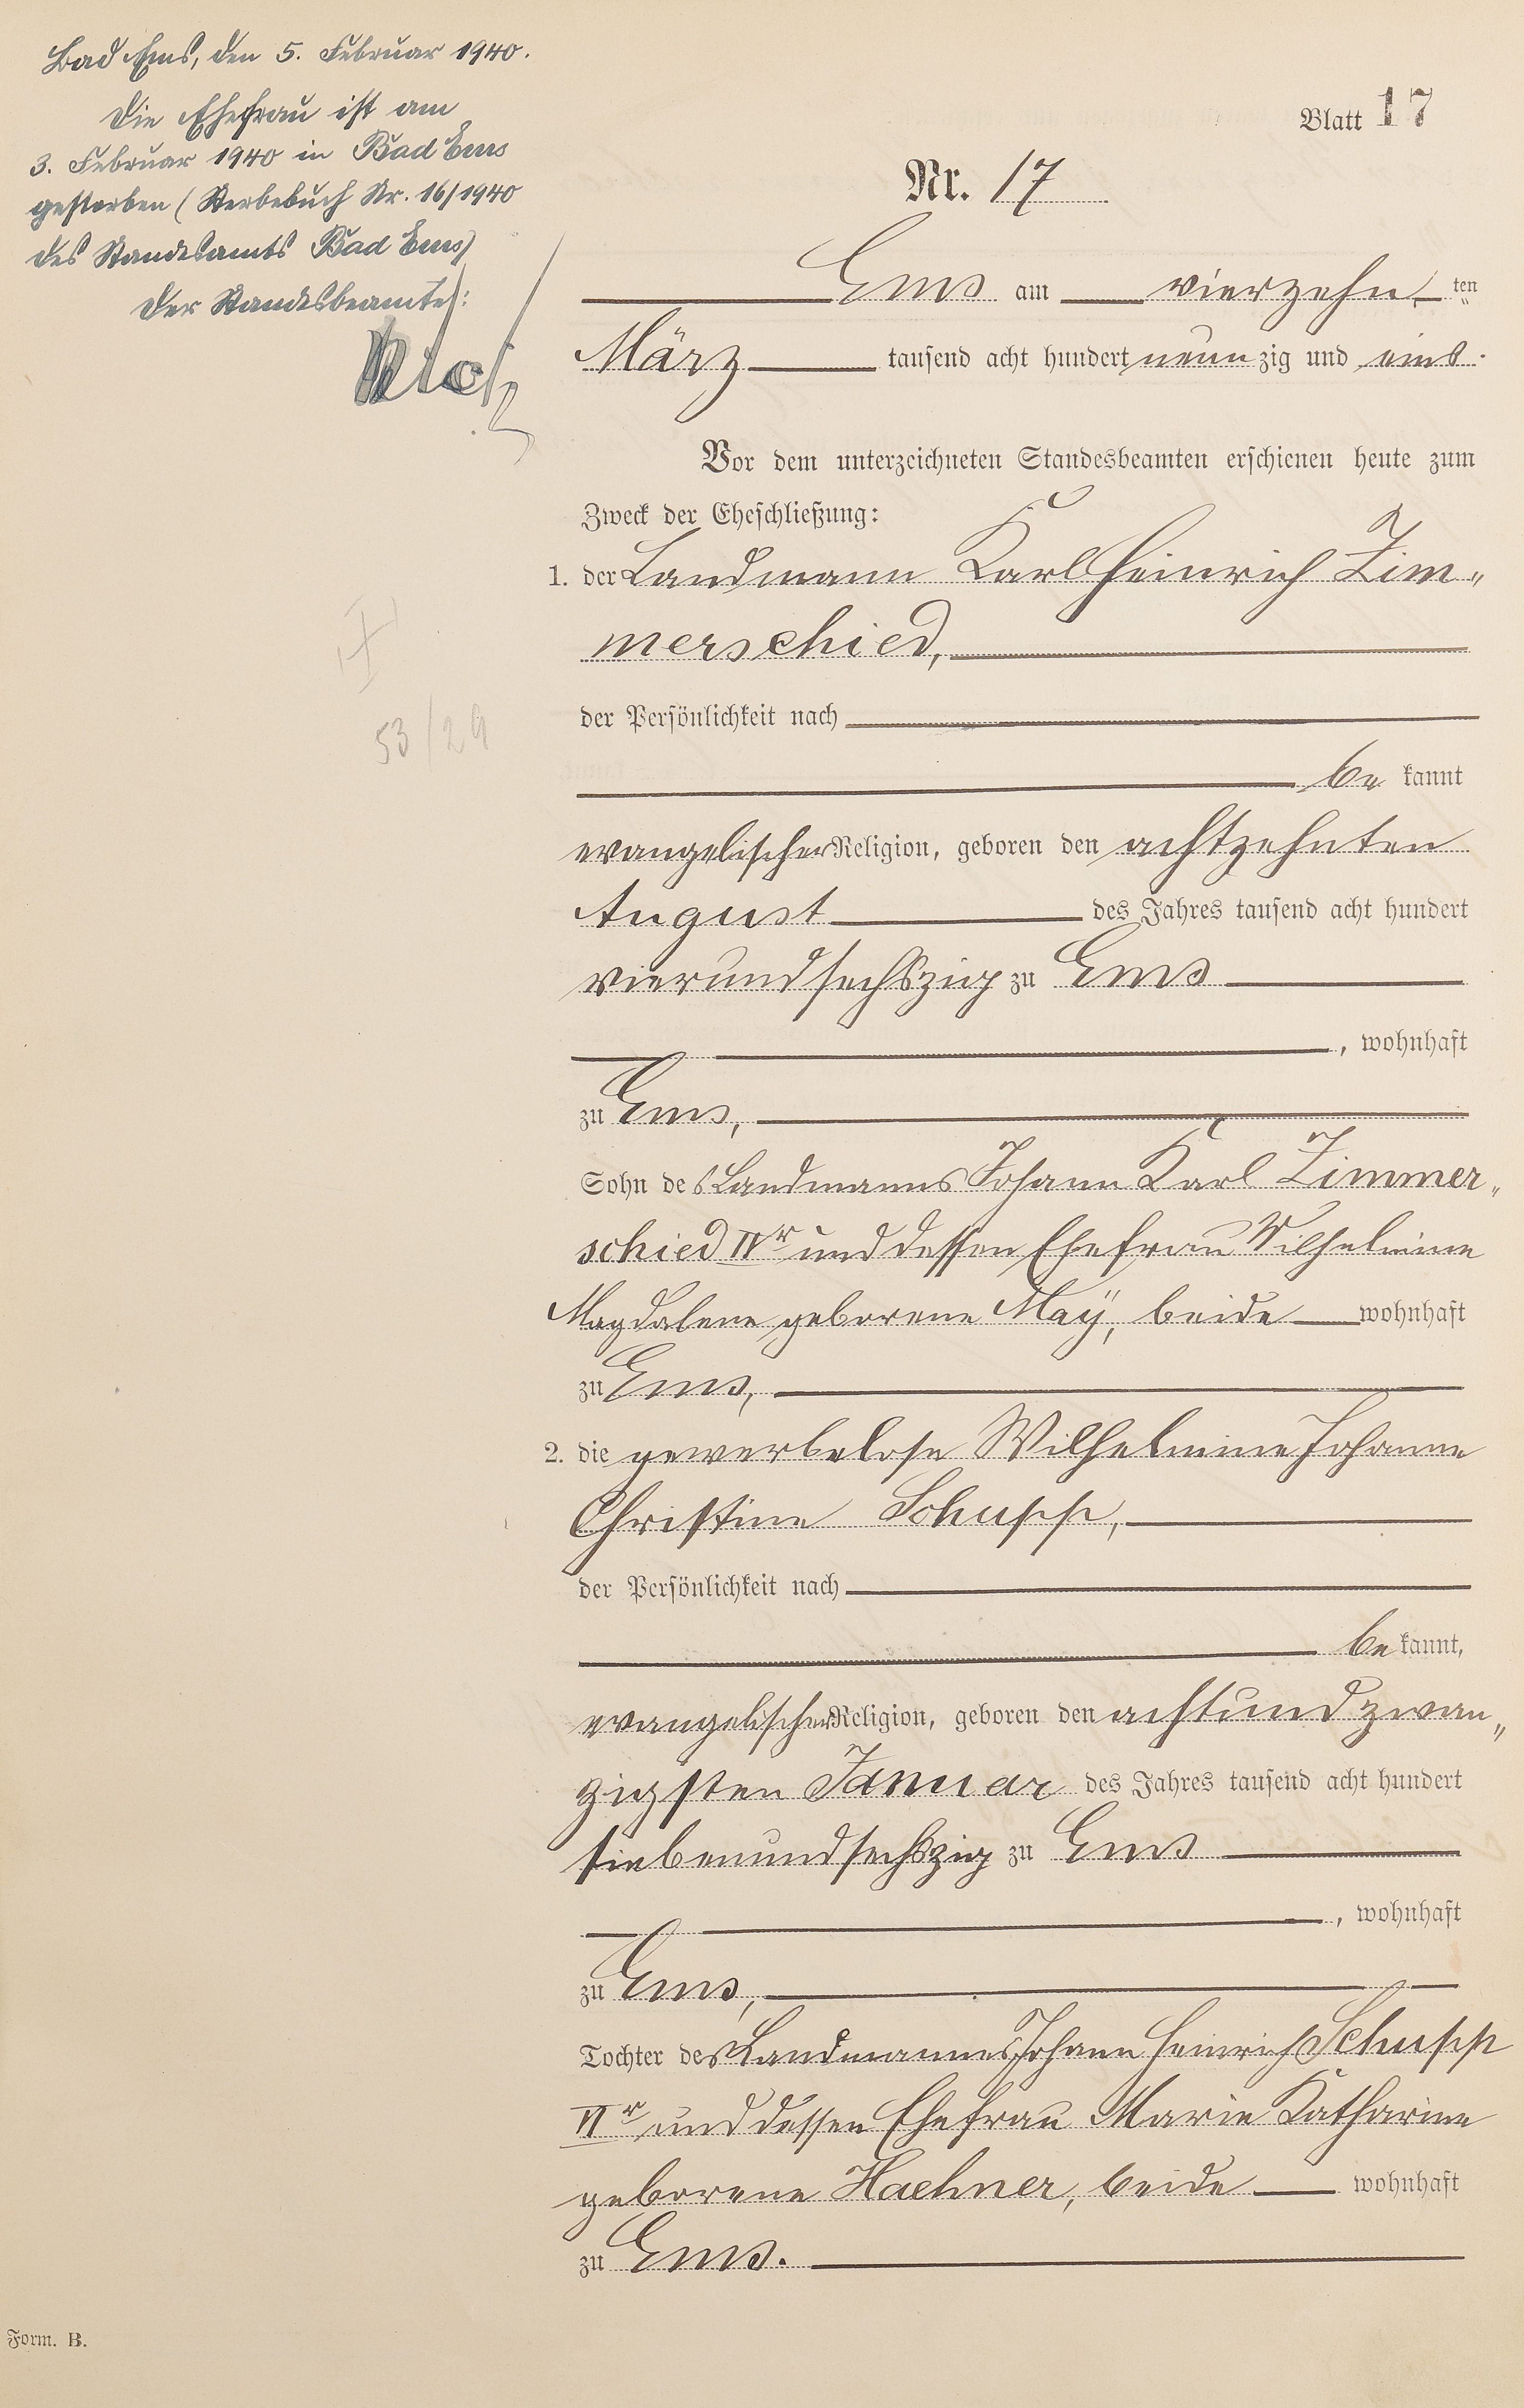 Bad Ems, den 5. Februar 1940.
Die Ehefrau ist am
3. Februar 1940 in Bad Ems
gestorben (Sterbebuch Nr. 16/1940
des Standesamts Bad Ems)
Der Standesbeamte:
Blatt 17
Nr. 17
Ems am vierzehn ten
März tausend acht hundert neun zig und eins.
Vor dem unterzeichneten Standesbeamten erschienen heute zum
Zweck der Eheschließung:
1. der Landmann Karl Heinrich Zim„
merschied,
der Persönlichkeit nach
be kannt
53/29
evangelischer Religion, geboren den achtzehnten
August des Jahres tausend acht hundert
vierundsechszig zu Ems
, wohnhaft
zu Ems,
Sohn des Landmanns Johann Karl Zimmer„
schied IVr und dessen Ehefrau Wilhelmine
Magdalene geborene Maÿ, beide wohnhaft
zu Ems,
2. die gewerbelose Wilhelmine Johanne
Christine Schupp,
der Persönlichkeit nach
be kannt,
evangelischer Religion, geboren den achtund zwan„
zigsten Januar des Jahres tausend acht hundert
siebenundsechszig zu Ems
, wohnhaft
zu Ems,
Tochter des Landmannes Johann Heinrich Schupp
VIr und dessen Ehefrau Marie Katharine
geborene Haehner, beide wohnhaft
zu Ems.
Form. B.